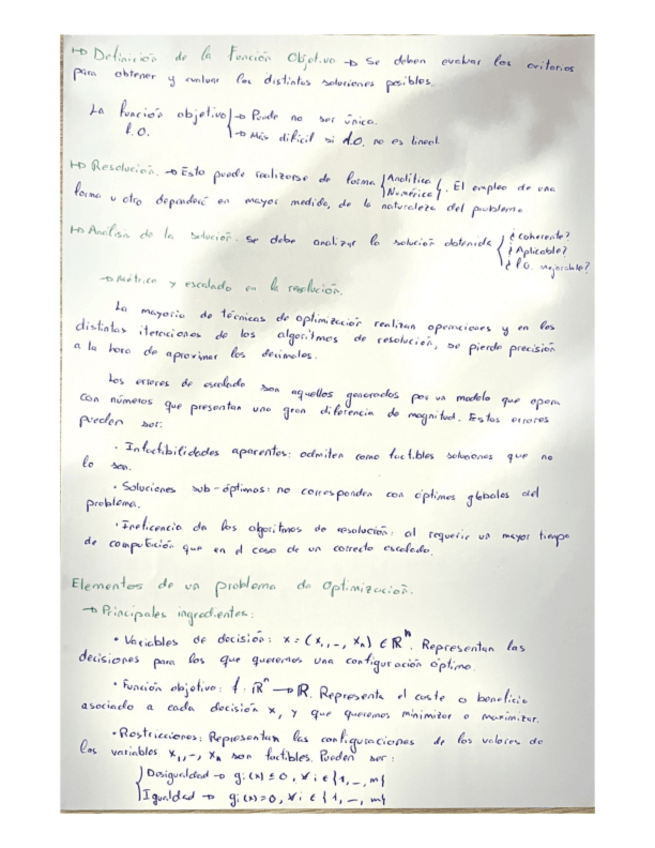 ↦ Definición de la Función Objetivo → Se deben evaluar los criterios
para obtener y evaluar las distintas soluciones posibles.
La función objetivo → Puede no ser única.
f.O. → Más difícil si f.O. no es lineal.
↦ Resolución. → Esto puede realizarse de forma {Analítica Numérica}. El empleo de una
forma u otra dependerá en mayor medida, de la naturaleza del problema
↦ Análisis de la solución. Se debe analizar la solución obtenida { ¿Coherente?
¿Aplicable?
¿f.O. mejorable?
→ Métrica y escalado en la resolución.
La mayoría de técnicas de optimización realizan operaciones y en las
distintas iteraciones de los algoritmos de resolución, se pierde precisión
a la hora de aproximar los decimales.
Los errores de escalado son aquellos generados por un modelo que opera
con números que presentan una gran diferencia de magnitud. Estos errores
pueden ser:
• Infactibilidades aparentes: admiten como factibles soluciones que no
lo son.
• Soluciones sub-óptimas: no corresponden con óptimos globales del
problema.
• Ineficencia de los algoritmos de resolución: al requerir un mayor tiempo
de computación que en el caso de un correcto escalado.
Elementos de un problema de Optimización.
→ Principales ingredientes:
• Variables de decisión: x = (x₁,-, xₙ) ∈ ℝⁿ. Representan las
decisiones para las que queremos una configuración óptima.
• Función objetivo: f: ℝⁿ → ℝ. Representa el coste o beneficio
asociado a cada decisión x, y que queremos minimizar o maximizar.
• Restricciones: Representan las configuraciones de los valores de
las variables x₁,-, xₙ son factibles. Pueden ser:
{ Desigualdad → gᵢ(x) ≤ 0, ∀i ∈ {1, -, m}
Igualdad → gᵢ(x)=0, ∀i ∈ {1, -, m}